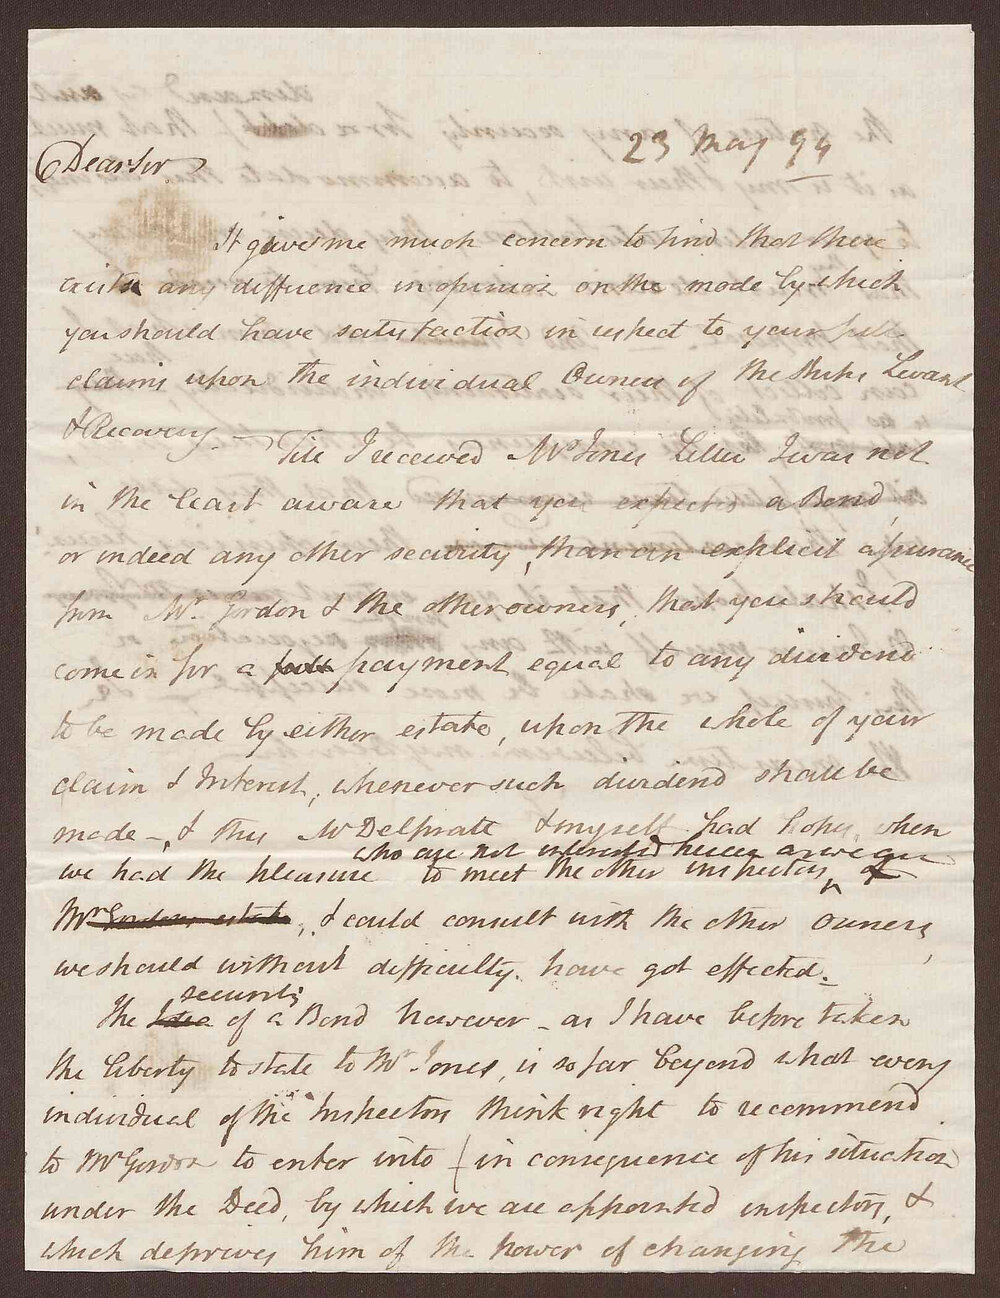 23 May 94
Dear Sir
It gives me much concern to find that there
exists any difference in opinion on the mode by which
you should have satisfaction in respect to your full
claims upon the individual Owners of the Ships Levant
& Recovery - Till I received Mr Jones Letter I was not
in the least aware that you expected a Bond,
or indeed any other security, than an explicit assurance
from Mr. Gordon & the other owners, that you should
come in for a full payment equal to any dividend
to be made by either estate, upon the whole of your
claim & Interest, whenever such dividend shall be
made -, & this Mr Delpratt & myself had hopes, when
who are not interested as we are
we had the pleasure to meet the other inspectors, of
Mr Gordons estate, & could consult with the other Owners,
we should without difficulty have got effected.
security
The Idea of a Bond however - as I have before taken
the liberty to state to Mr Jones, is so far beyond what every
individual of the Inspectors think right to recommend
to Mr Gordon to enter into (in consequence of his situation
under the Deed, by which we are appointed inspectors, &
which deprives him of the power of changing the